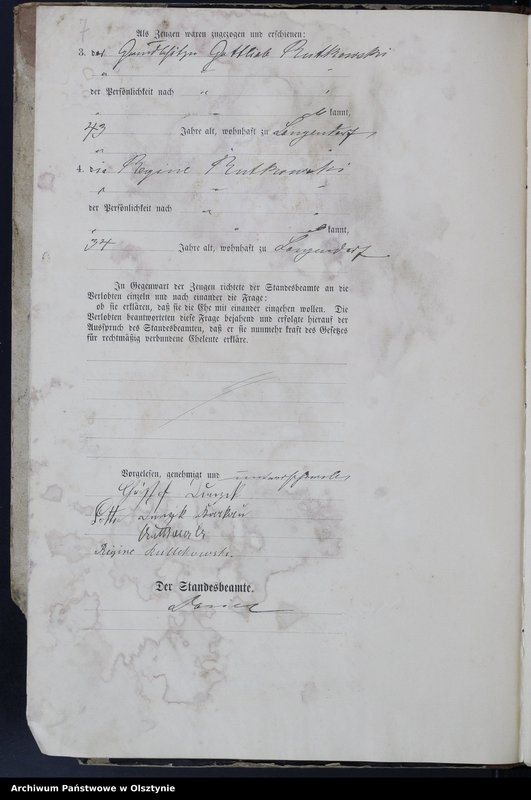 7
Als Zeugen waren zugezogen und erschienen:
3. der Grundbesitzer Gottlieb Rutkowski
der Persönlichkeit nach
kannt,
43 Jahre alt, wohnhaft zu Langendorf,
4. die Regine Rutkowski
der Persönlichkeit nach
kannt,
34 Jahre alt, wohnhaft zu Langendorf
In Gegenwart der Zeugen richtete der Standesbeamte an die
Verlobten einzeln und nach einander die Frage:
ob sie erklären, daß sie die Ehe mit einander eingehen wollen. Die
Verlobten beantworteten diese Frage bejahend und erfolgte hierauf der
Ausspruch des Standesbeamten, daß er sie nunmehr kraft des Gesetzes
für rechtmäßig verbundene Eheleute erkläre.
Vorgelesen, genehmigt und unterschrieben
Regine
Der Standesbeamte.
Archiwum Państwowe w Olsztynie